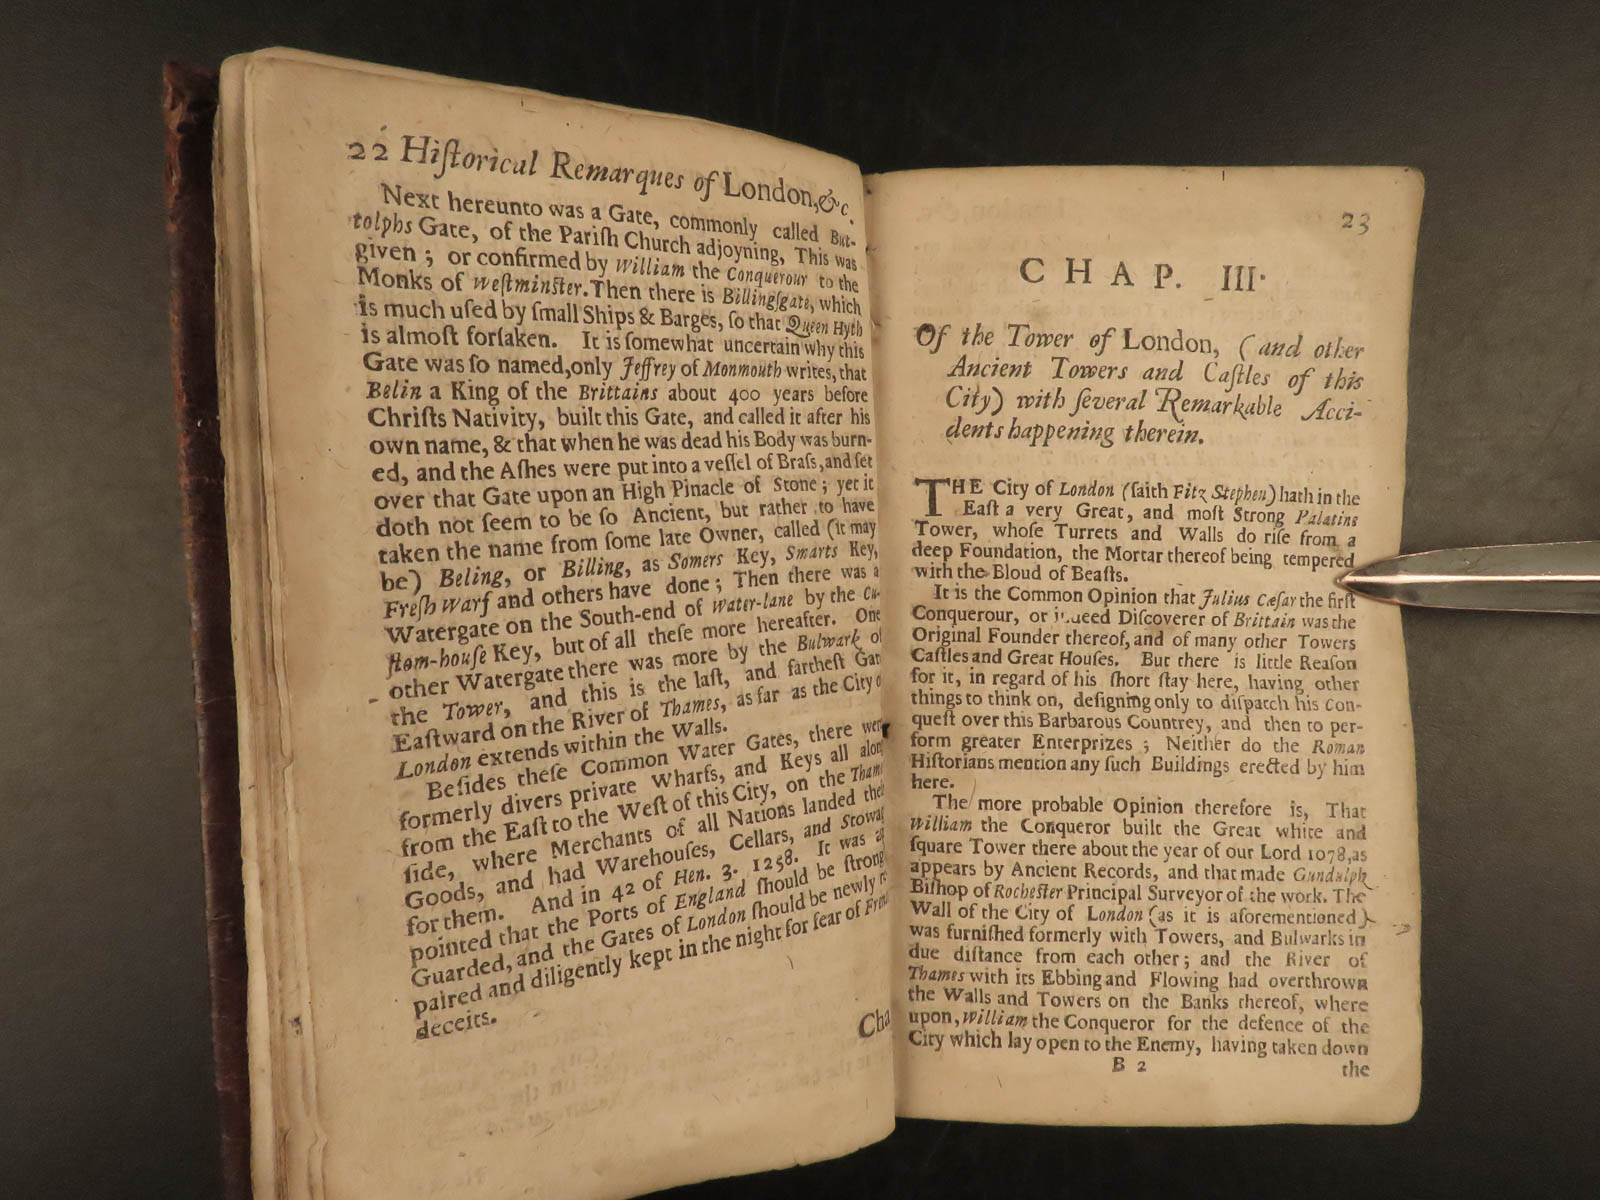 22 Hiſtorical Remarques of London,&c.
Next hereunto was a Gate, commonly called But-
tolphs Gate, of the Pariſh Church adjoyning, This was
given ; or confirmed by William the Conquerour to the
Monks of Weſtminſter. Then there is Billingſgate, which
is much uſed by ſmall Ships & Barges, ſo that Queen Hyth
is almoſt forſaken. It is ſomewhat uncertain why this
Gate was ſo named, only Jeffrey of Monmouth writes, that
Belin a King of the Brittains about 400 years before
Chriſts Nativity, built this Gate, and called it after his
own name, & that when he was dead his Body was burn-
ed, and the Aſhes were put into a veſſel of Braſs, and ſet
over that Gate upon an High Pinacle of Stone ; yet it
doth not ſeem to be ſo Ancient, but rather to have
taken the name from ſome late Owner, called (it may
be) Beling, or Billing, as Somers Key, Smarts Key,
Freſh Warf and others have done ; Then there was a
Watergate on the South-end of Water-lane by the Cu-
ſtom-houſe Key, but of all theſe more hereafter. One
other Watergate there was more by the Bulwark of
the Tower, and this is the laſt, and fartheſt Gat
Eaſtward on the River of Thames, as far as the City o
London extends within the Walls.
Beſides theſe Common Water Gates, there wer
formerly divers private Wharfs, and Keys all alon
from the Eaſt to the Weſt of this City, on the Thame
ſide, where Merchants of all Nations landed thei
Goods, and had Warehouſes, Cellars, and Stowag
for them. And in 42 of Hen. 3. 1258. It was ap
pointed that the Ports of England ſhould be ſtrong
Guarded, and the Gates of London ſhould be newly re
paired and diligently kept in the night for fear of Fren
deceits.
Cha
23
CHAP. III.
Of the Tower of London, (and other
Ancient Towers and Caſtles of this
City) with ſeveral Remarkable Acci-
dents happening therein.
THE City of London (ſaith Fitz Stephen) hath in the
Eaſt a very Great, and moſt Strong Palatine
Tower, whoſe Turrets and Walls do riſe from a
deep Foundation, the Mortar thereof being tempered
with the Bloud of Beaſts.
It is the Common Opinion that Julius Cæſar the firſt
Conquerour, or indeed Diſcoverer of Brittain was the
Original Founder thereof, and of many other Towers
Caſtles and Great Houſes. But there is little Reaſon
for it, in regard of his ſhort ſtay here, having other
things to think on, deſigning only to diſpatch his Con-
queſt over this Barbarous Countrey, and then to per-
form greater Enterprizes ; Neither do the Roman
Hiſtorians mention any ſuch Buildings erected by him
here.
The more probable Opinion therefore is, That
William the Conqueror built the Great white and
ſquare Tower there about the year of our Lord 1078, as
appears by Ancient Records, and that made Gundulph
Biſhop of Rocheſter Principal Surveyor of the work. The
Wall of the City of London (as it is aforementioned)
was furniſhed formerly with Towers, and Bulwarks in
due diſtance from each other ; and the River of
Thames with its Ebbing and Flowing had overthrown
the Walls and Towers on the Banks thereof, where
upon, William the Conqueror for the defence of the
City which lay open to the Enemy, having taken down
B 2
the